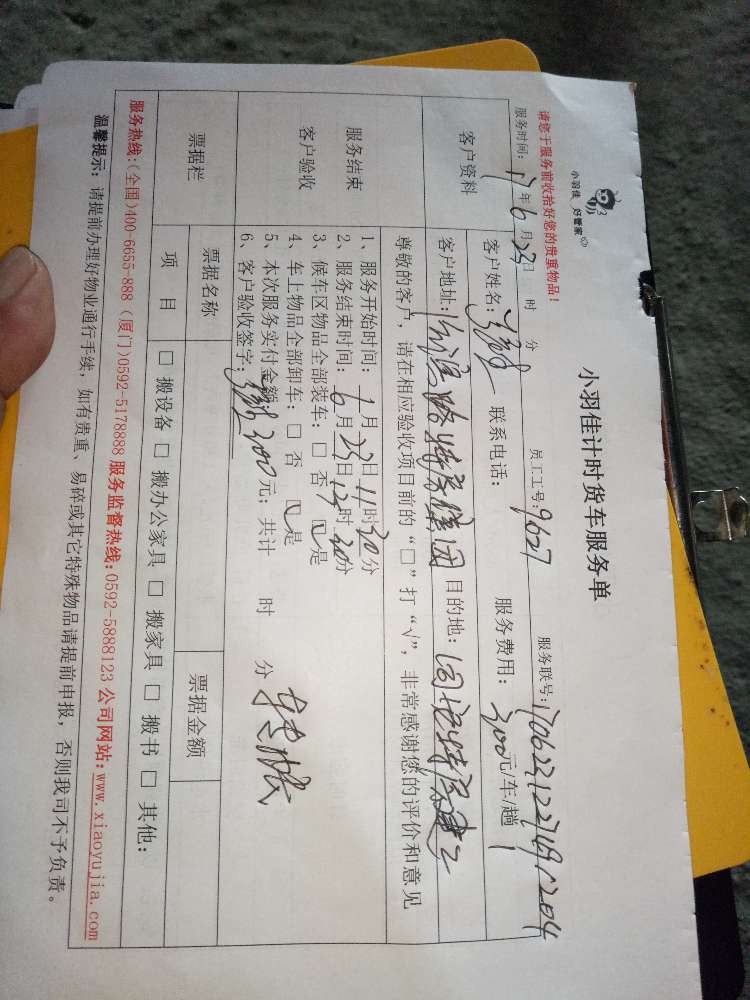 小羽佳 好管家
小羽佳计时货车服务单
请您于服务前收拾好您的贵重物品!
服务时间: 17年6月23日 时 分 员工工号: 9627 服务联号:
客户资料
客户姓名: 联系电话: 服务费用: 300元/车/趟
客户地址: 目的地:
服务结束
客户验收
尊敬的客户,请在相应验收项目前的“□”打“√”,非常感谢您的评价和意见
1、服务开始时间: 月23日11时30分
2、服务结束时间: 6月23日12时30分
3、候车区物品全部装车: □ 否 ☑是
4、车上物品全部卸车: □ 否 ☑是
5、本次服务实付金额: 300元; 共计 时 分
6、客户验收签字:
票据栏
票据名称 票据金额
项 目 □ 搬设备 □ 搬办公家具 □ 搬家具 □ 搬书 □ 其他:
服务热线:(全国)400-6655-888 (厦门)0592-5178888 服务监督热线:0592-5888123 公司网站:www.xiaoyujia.com
温馨提示: 请提前办理好物业通行手续,如有贵重、易碎或其它特殊物品请提前申报,否则我司不予负责。